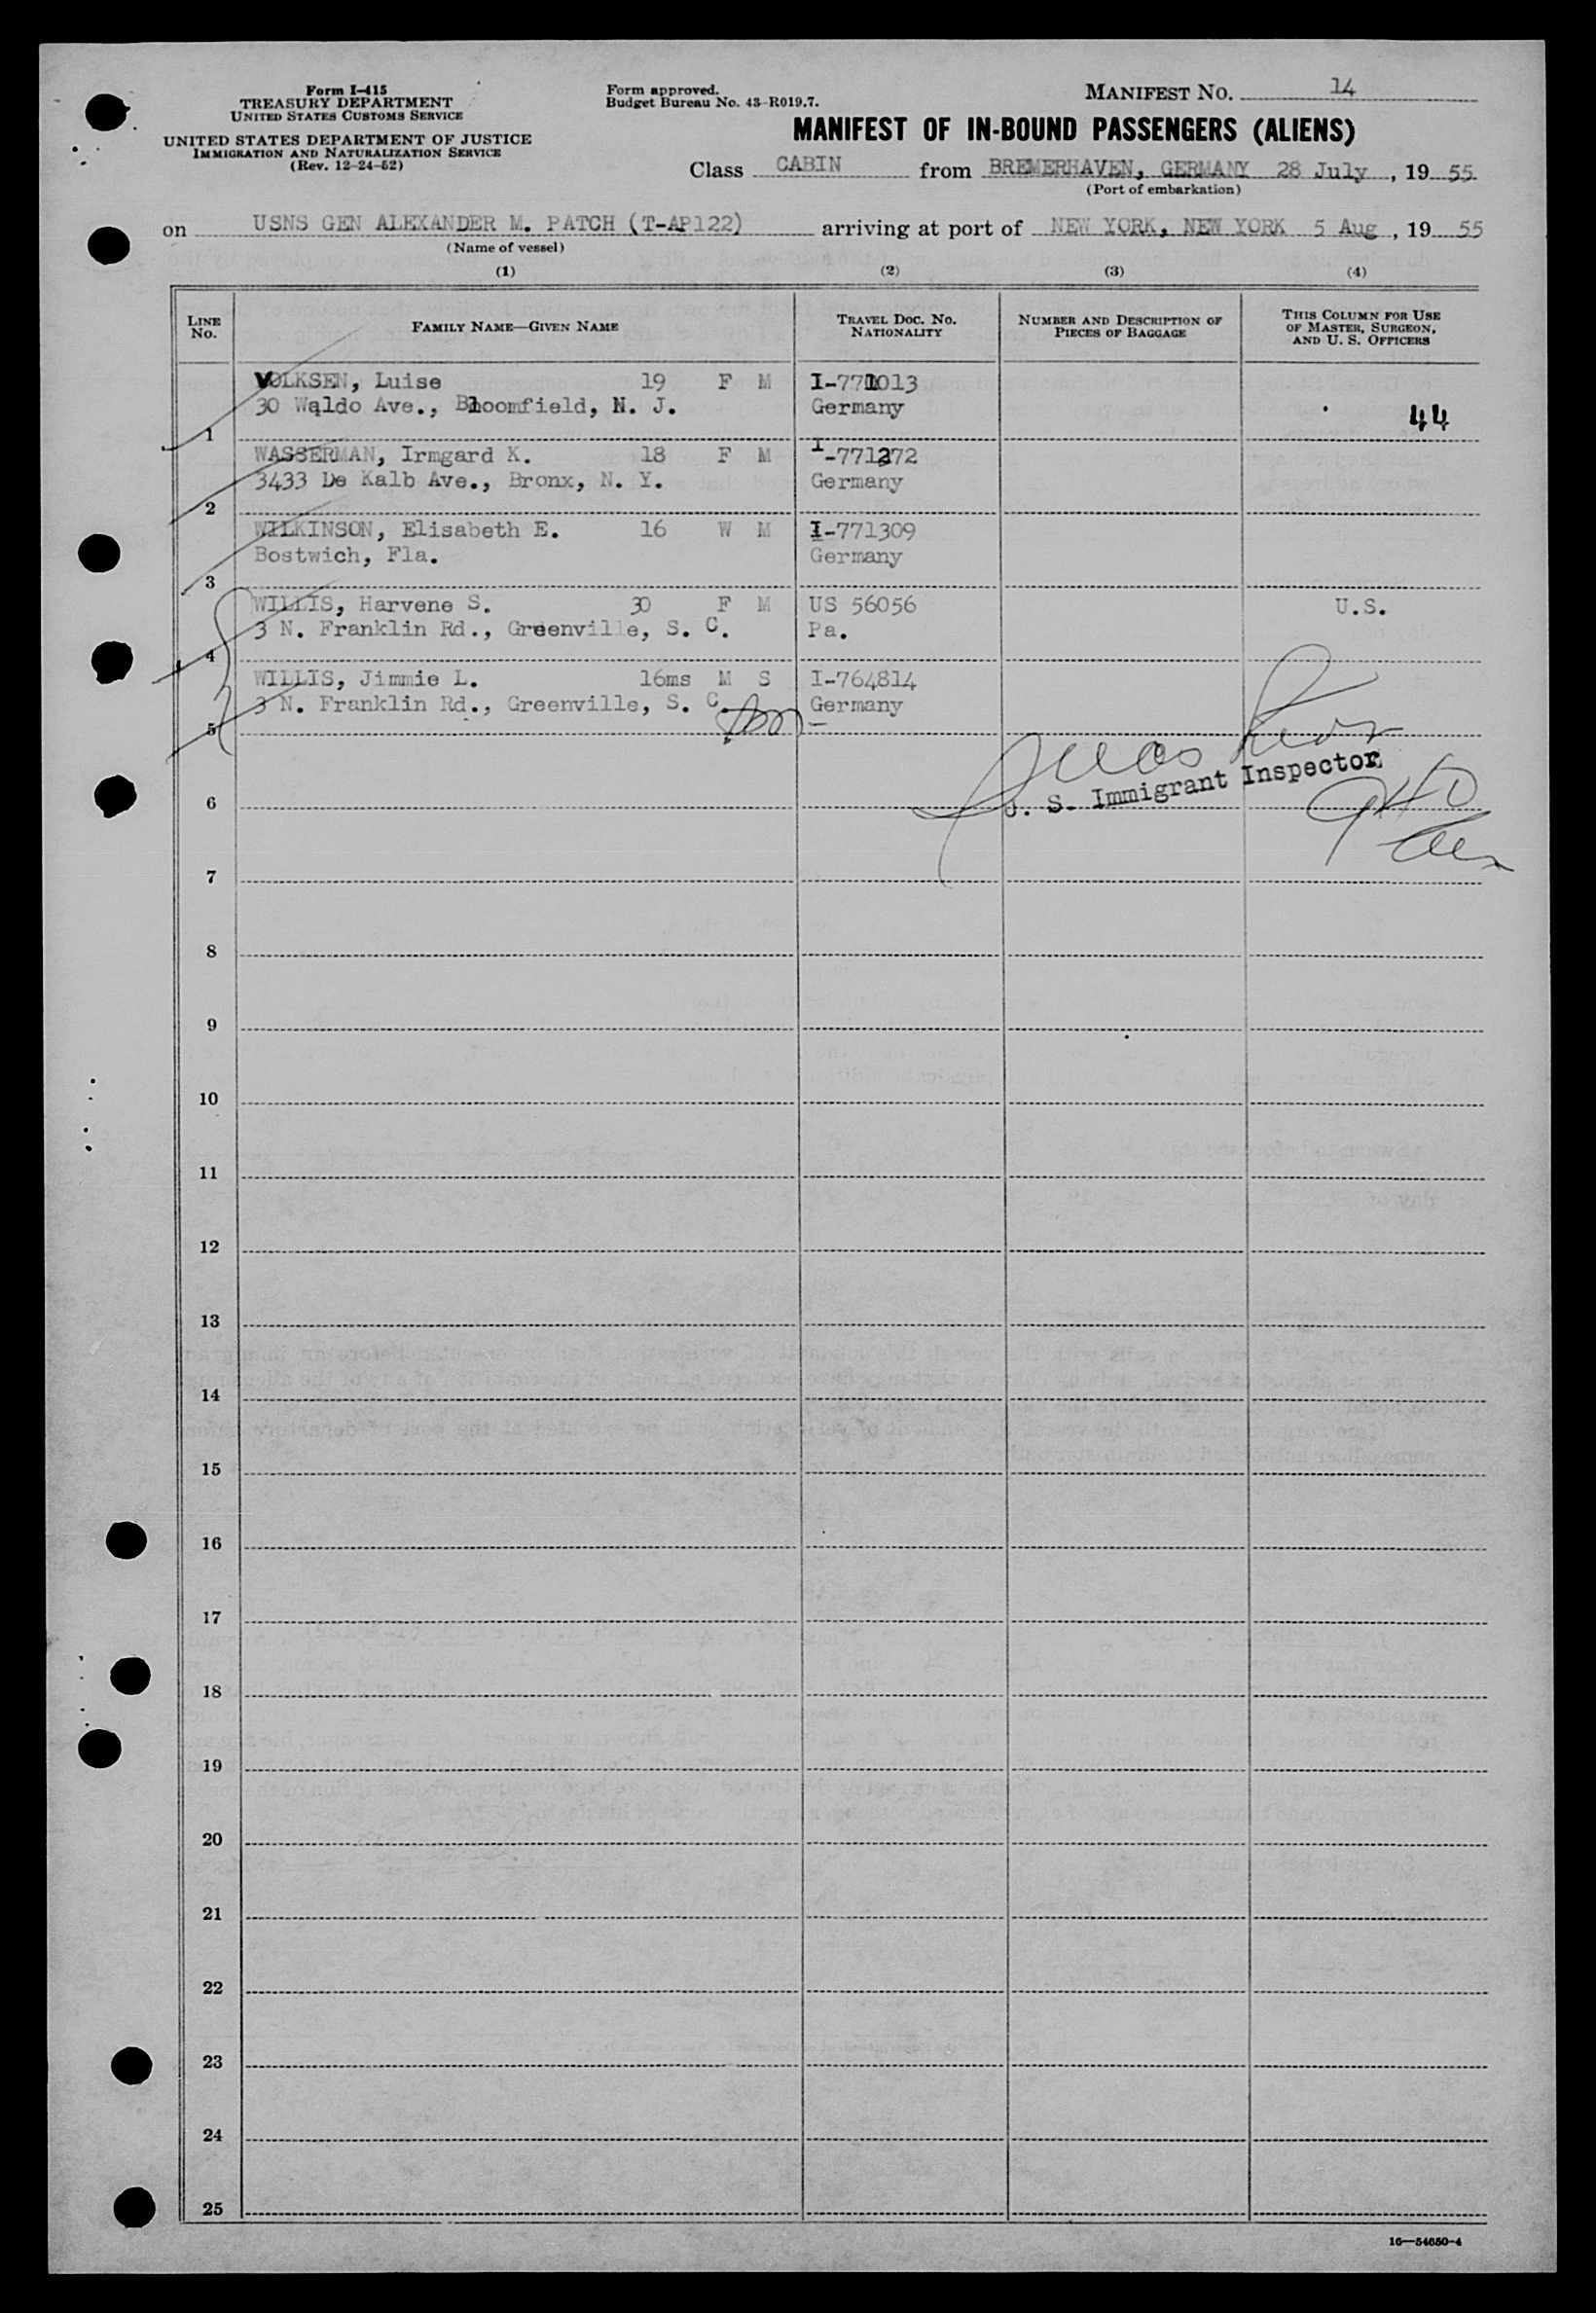 Form I-415
TREASURY DEPARTMENT
UNITED STATES CUSTOMS SERVICE
UNITED STATES DEPARTMENT OF JUSTICE
IMMIGRATION AND NATURALIZATION SERVICE
(Rev. 12-24-52)
Form approved.
Budget Bureau No. 43-R019.7.
MANIFEST NO. 14
MANIFEST OF IN-BOUND PASSENGERS (ALIENS)
Class CABIN from BREMERHAVEN, GERMANY 28 July, 19 55
(Port of embarkation)
on USNS GEN ALEXANDER M. PATCH (T-AP122) arriving at port of NEW YORK, NEW YORK 5 Aug, 19 55
(Name of vessel)
(1) (2) (3) (4)
LINE NO. FAMILY NAME—GIVEN NAME TRAVEL DOC. NO. NATIONALITY NUMBER AND DESCRIPTION OF PIECES OF BAGGAGE THIS COLUMN FOR USE OF MASTER, SURGEON, AND U. S. OFFICERS
VOLKSEN, Luise 19 F M I-771013
30 Waldo Ave., Bloomfield, N. J. Germany 44
1
WASSERMAN, Irmgard K. 18 F M I-771272
3433 De Kalb Ave., Bronx, N. Y. Germany
2
WILKINSON, Elisabeth E. 16 W M I-771309
Bostwich, Fla. Germany
3
WILLIS, Harvene S. 30 F M US 56056 U.S.
3 N. Franklin Rd., Greenville, S. C. Pa.
4
WILLIS, Jimmie L. 16ms M S I-764814
3 N. Franklin Rd., Greenville, S. C. Germany
5
U. S. Immigrant Inspector
6
7
8
9
10
11
12
13
14
15
16
17
18
19
20
21
22
23
24
25
16—54650-4